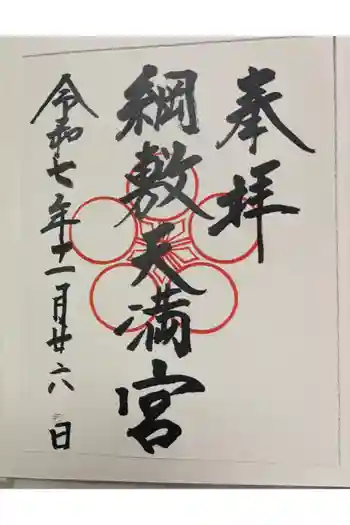 奉拝
綱敷天満宮
令和七年十一月廿六日